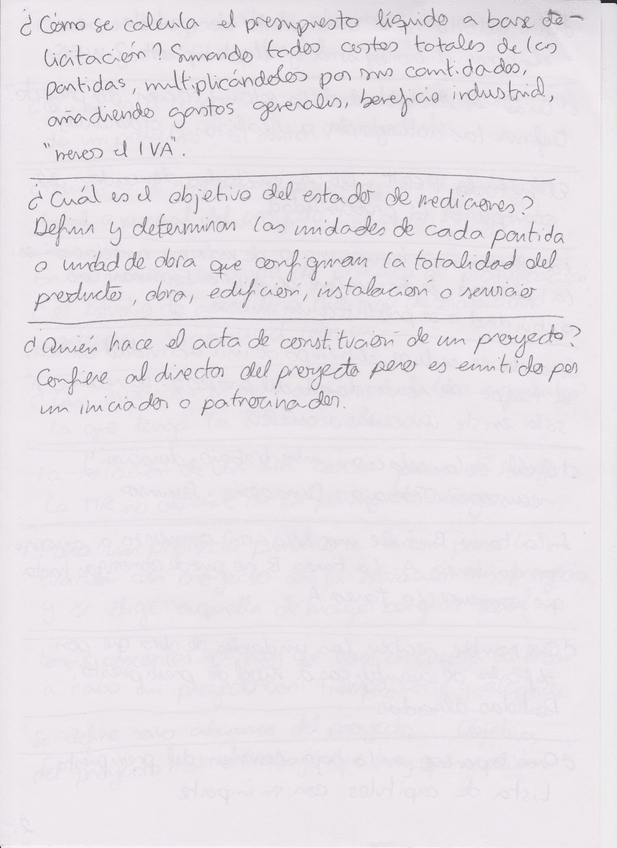 ¿Cómo se calcula el presupuesto líquido a base de
licitación? Sumando todos costes totales de las
partidas, multiplicándolos por sus cantidades,
añadiendo gastos generales, beneficio industrial,
"menos el IVA".
¿Cuál es el objetivo del estado de mediciones?
Definir y determinar las unidades de cada partida
o unidad de obra que configuran la totalidad del
producto, obra, edificicion, instalación o servicio
¿Quién hace el acta de constitución de un proyecto?
Confiere al director del proyecto pero es emitido por
un iniciador o patrocinador.